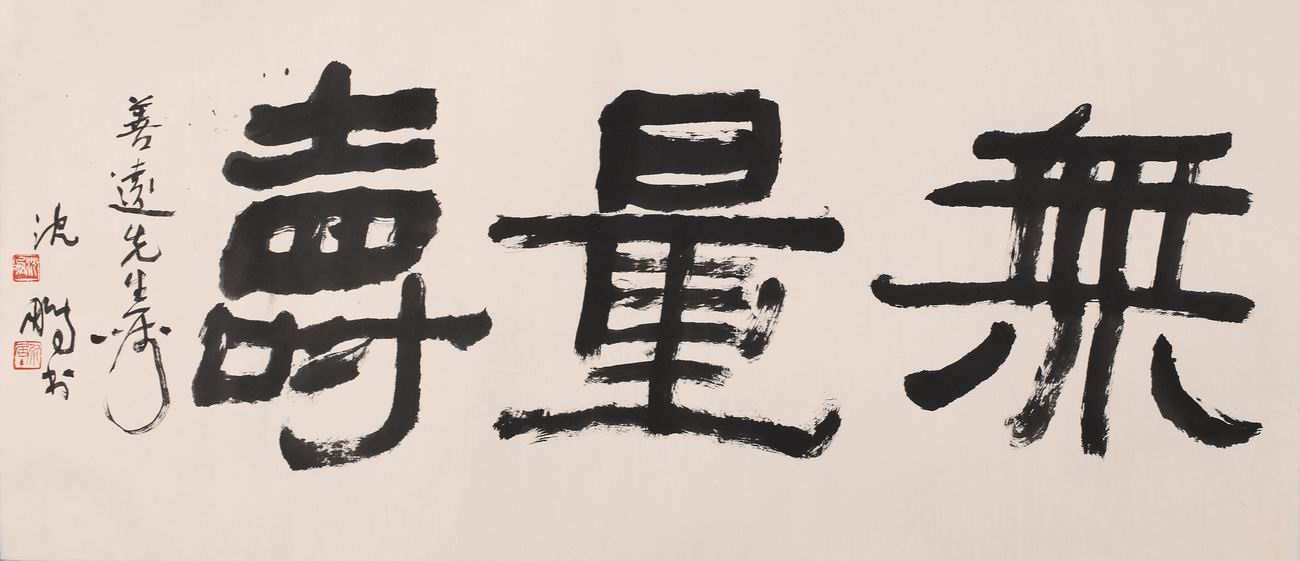 無量壽
善遠先生屬
沈鵬書